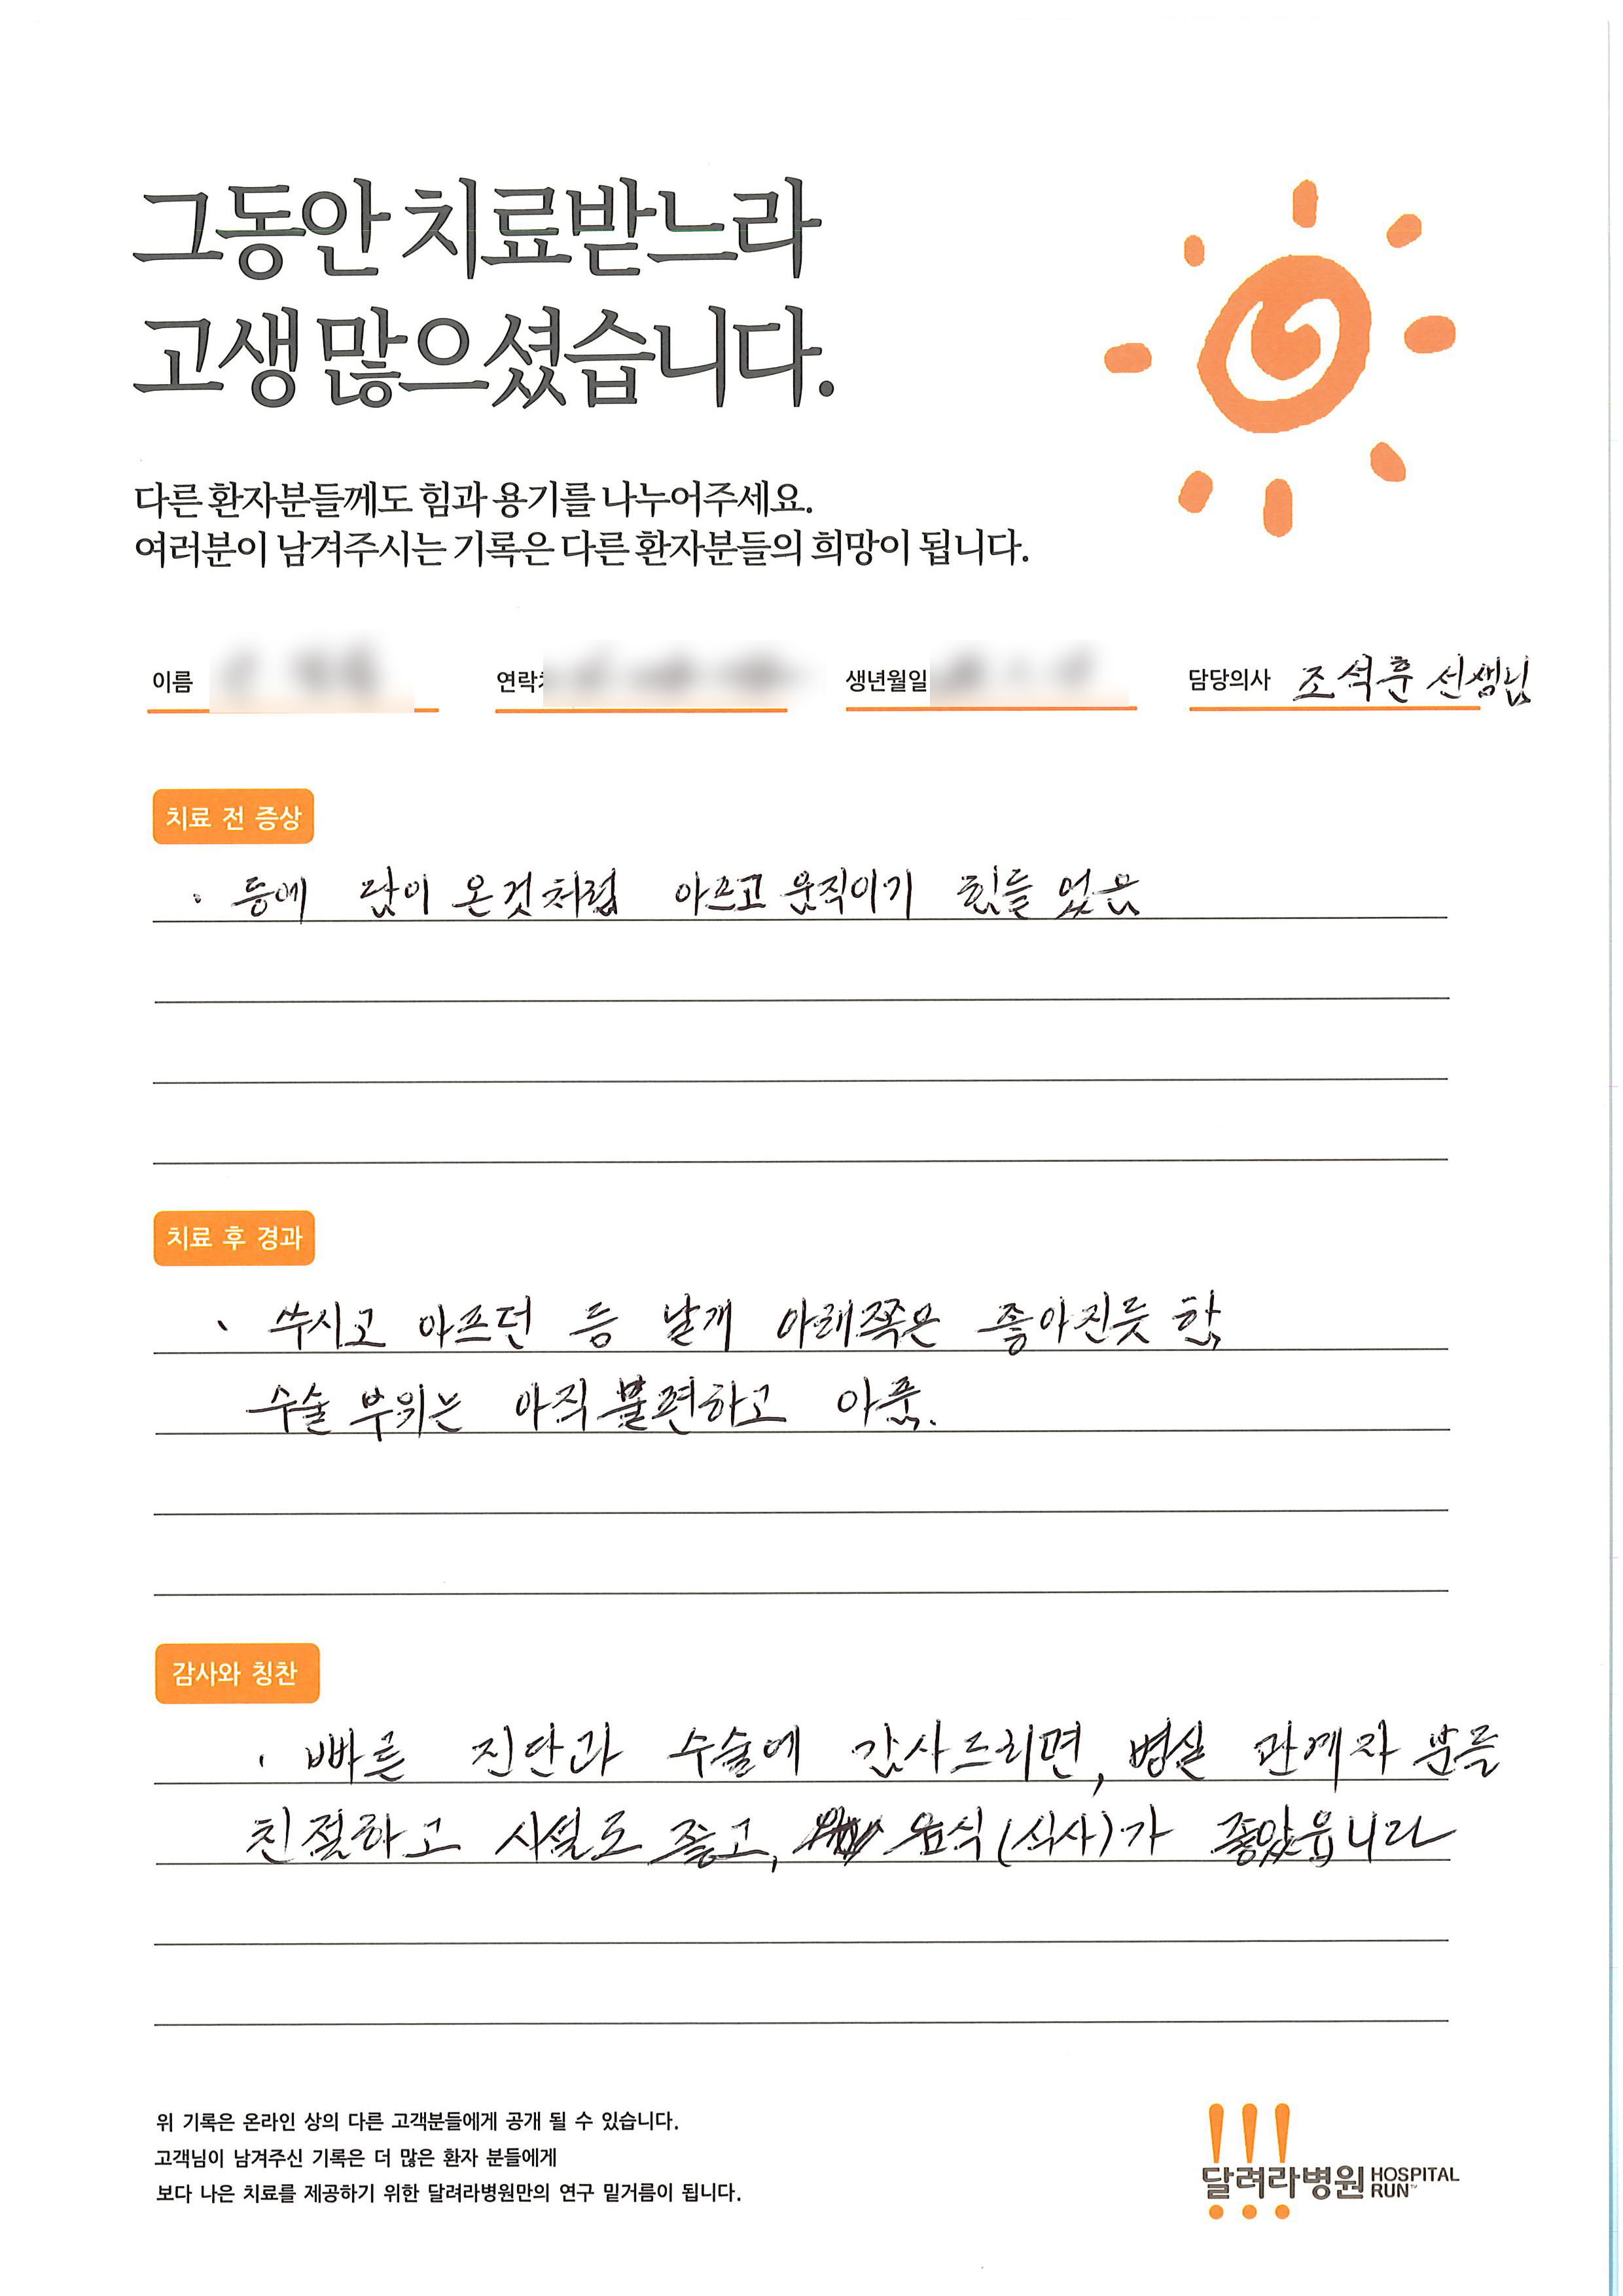 그동안 치료받느라
고생 많으셨습니다.
다른 환자분들께도 힘과 용기를 나누어주세요.
여러분이 남겨주시는 기록은 다른 환자분들의 희망이 됩니다.
이름 연락 생년월일 담당의사 조석훈 선생님
치료 전 증상
· 등에 담이 온것처럼 아프고 움직이기 힘들었음
치료 후 경과
· 쑤시고 아프던 등 날개 아래쪽은 좋아진듯 함
수술 부위는 아직 불편하고 아픔.
감사와 칭찬
· 빠른 진단과 수술에 감사드리면, 병실 관계자 분들
친절하고 시설도 좋고, 음식(식사)가 좋았읍니다
위 기록은 온라인 상의 다른 고객분들에게 공개 될 수 있습니다.
고객님이 남겨주신 기록은 더 많은 환자 분들에게
보다 나은 치료를 제공하기 위한 달려라병원만의 연구 밑거름이 됩니다.
달려라병원 HOSPITAL RUN™